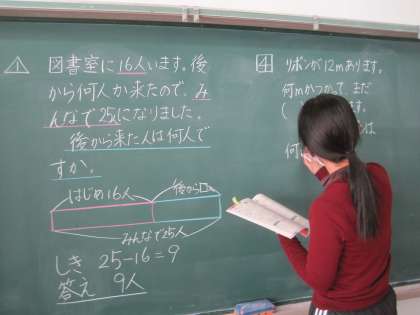 1 図書室に16人います。後
から何人か来たので、み
んなで25人になりました。
後から来た人は何人で
すか。
はじめ16人 後から□人
みんなで25人
しき 25-16=9
答え 9人
4 リボンが12mあります。
何mかつかって、まだ
(
す。
は
何